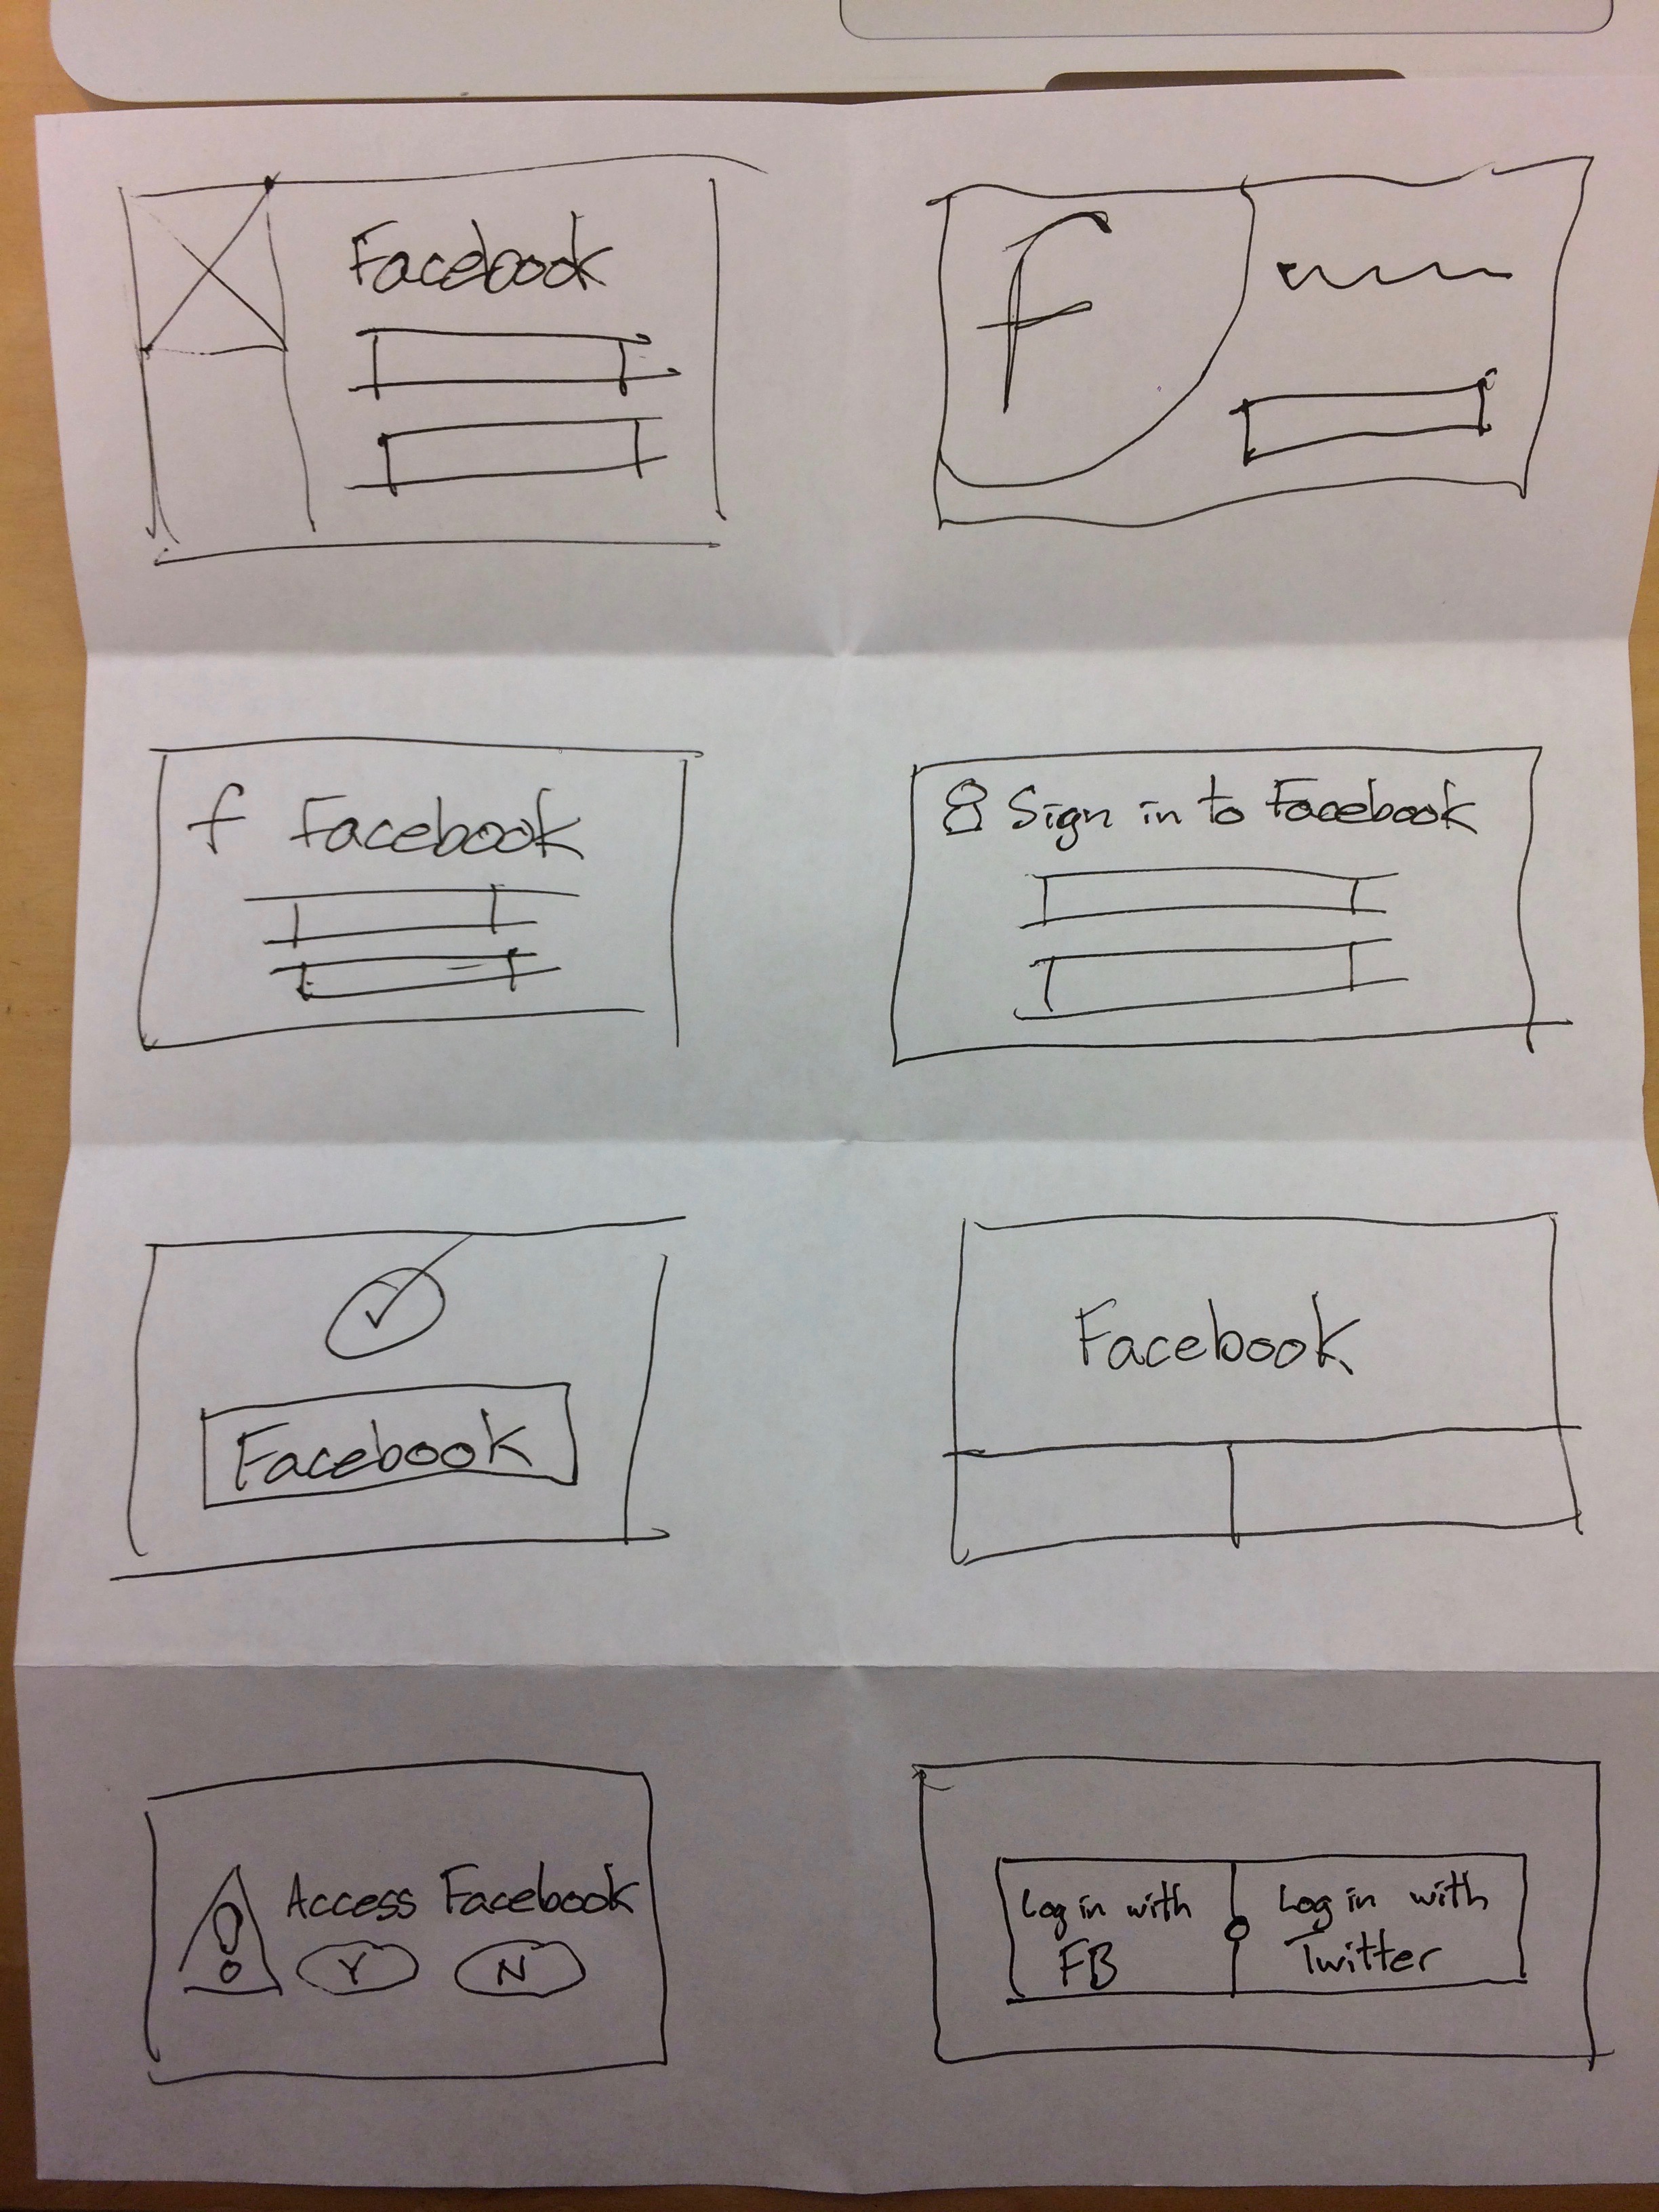 Facebook
f
f Facebook
Sign in to Facebook
Facebook
Facebook
! Access Facebook
Y N
Log in with
FB
Log in with
Twitter